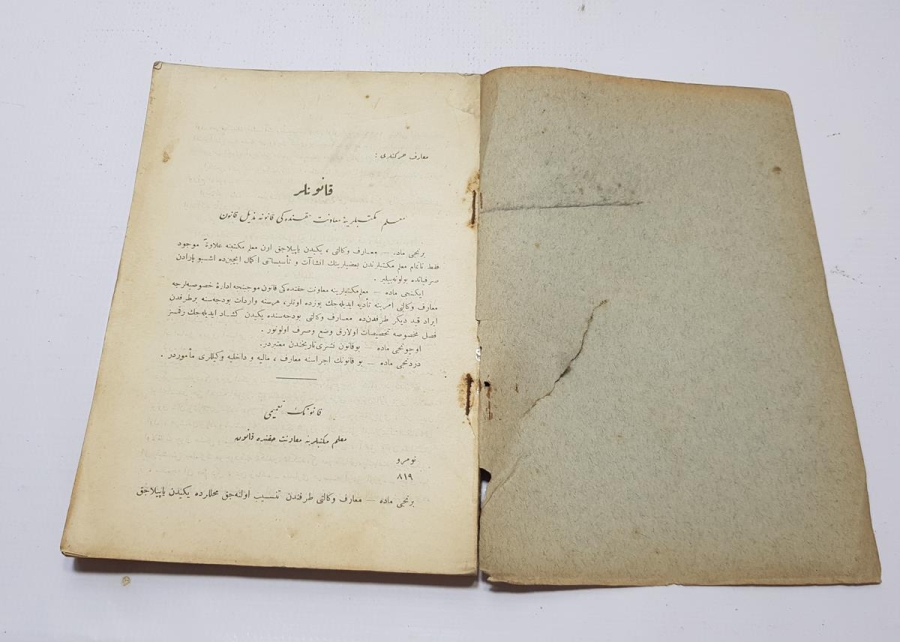 معارف مركزى :
قانونلر
معلم مكتبلرينه معاونت حقنده كى قانونه مذيل قانون
برنجى ماده — معارف وكالتى ، يكيدن ياپيلاجق اون معلم مكتبنه علاوةً موجود
فقط ناتمام معلم مكتبلرندن بعضيلرينك انشاآت و تأسيساتى اكمال ايچون ده اشبو پارادن
صرفياتده بولونه بيلير .
ايكنجى ماده — معلم مكتبلرينه معاونت حقنده كى قانون موجبنجه ادارۀ خصوصيه لرجه
معارف وكالتى امرينه تأديه ايديله جك يوزده اونلر ، هر سنه واردات بودجه سنه بر طرفدن
ايراد قيد ديكر طرفدن ده معارف وكالتى بودجه سنده يكيدن كشاد ايديله جك
فصل مخصوصه تخصيصات اولارق وضع وصرف اولونور .
اوچونجى ماده — بو قانون نشرى تاريخندن معتبردر .
دردنجى ماده — بو قانونك اجراسنه معارف ، ماليه و داخليه وكيللرى مأموردر .
قانونك تعميمى
معلم مكتبلرينه معاونت حقنده قانون
نومرو
٨١٩
برنجى ماده — معارف وكالتى طرفندن تنسيب اولنه جق محللرده يكيدن ياپيلاجق